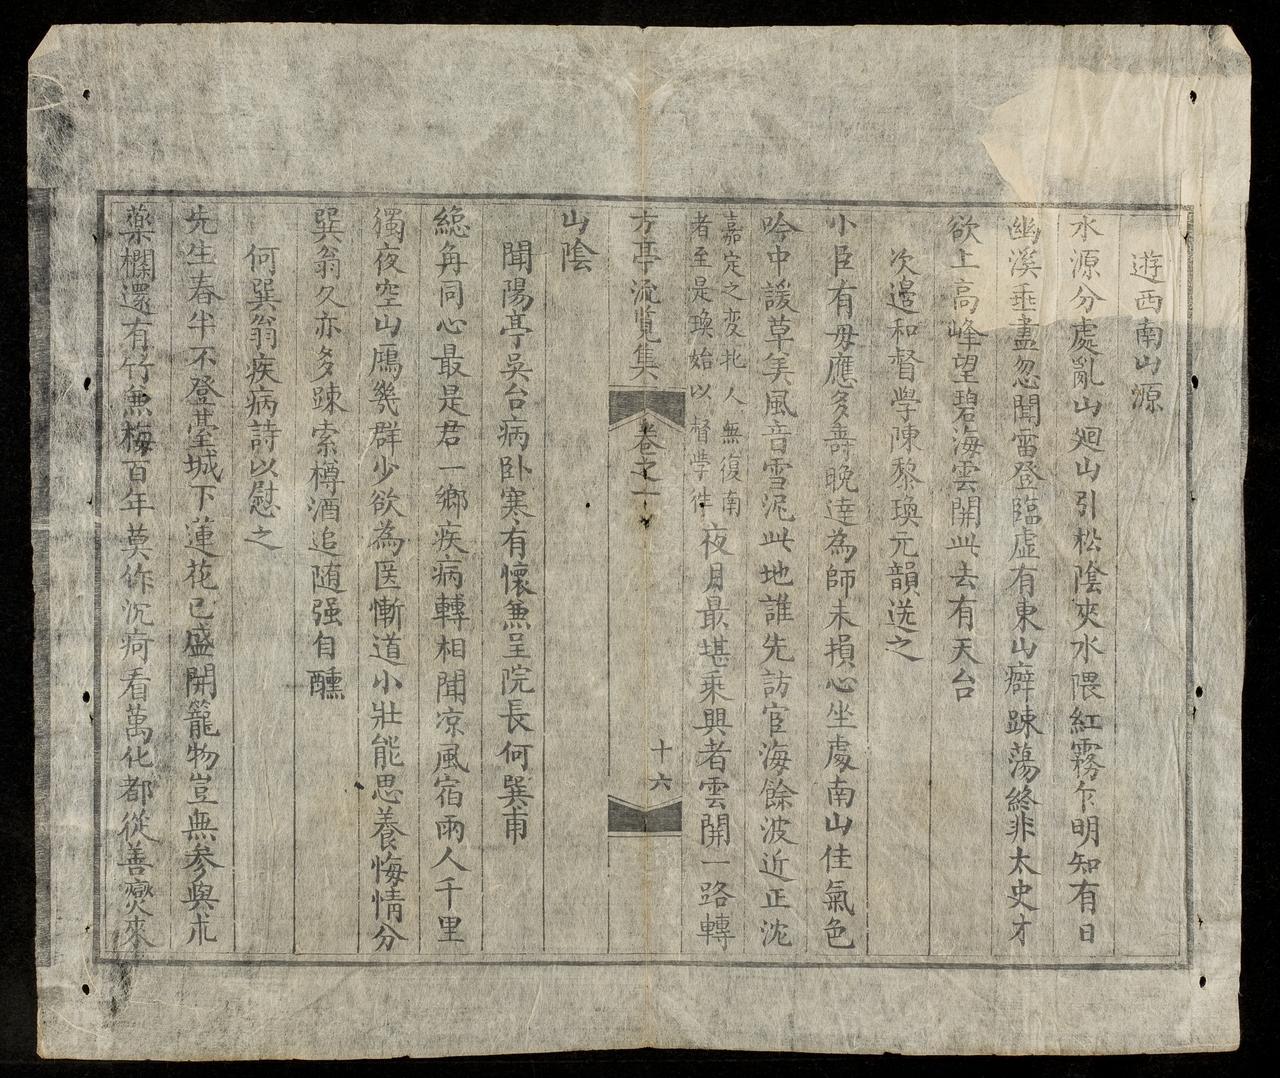 遊西南山源
水源分處亂山廻山引松陰夾水隈紅霧乍明知有日
幽溪垂盡忽聞雷登臨虛有東山癖踈蕩終非太史才
欲上高峰望碧海雲開此去有天台
次邊和督學陳黎瑍元韻送之
小臣有母應多壽晚達為師未損心坐處南山佳氣色
吟中諼草美風音雪泥此地誰先訪宦海餘波近正沈
嘉定之変北人無復南
者至是瑍始以督學往
夜月最堪乘興者雲開一路轉
方亭流覧集
卷之一
十六
山陰
聞陽亭吳台病卧寒有懷兼呈院長何巽甫
緫角同心最是君一鄉疾病轉相聞凉風宿雨人千里
獨夜空山鴈幾群少欲為医慚道小壯能思養悔情分
巽翁久亦多踈索樽酒追随强自醺
何巽翁疾病詩以慰之
先生春半不登臺城下蓮花已盛開籠物豈無参與朮
藥欄還有竹兼梅百年莫作沉疴看萬化都從善燮來